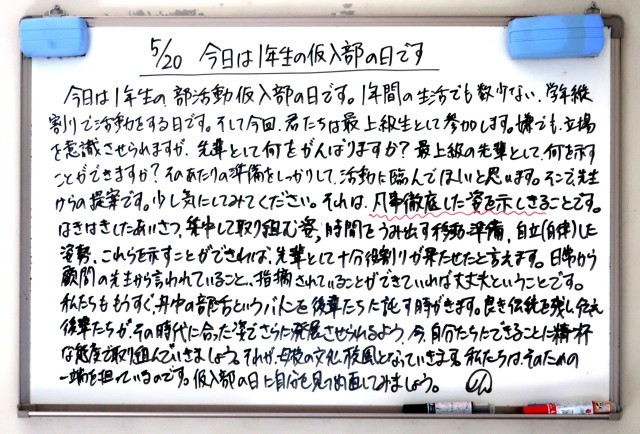 5/20 今日は1年生の仮入部の日です
今日は1年生の部活動仮入部の日です。1年間の生活でも数少ない、学年縦
割りで活動をする日です。そして今回、君たちは最上級生として参加します。嫌でも立場
を意識させられますが、先輩として何をがんばりますか？最上級の先輩として、何を示す
ことができますか？そのあたりの準備をしっかりして、活動に臨んでほしいと思います。そこで、先生
からの提案です。少し気にしてみてください。それは、凡事徹底した姿を示しきることです。
はきはきしたあいさつ、集中して取り組む姿、時間をうみ出す移動・準備、自立(自律)した
姿勢、これらを示すことができれば、先輩として十分役割りが果たせたと言えます。日常から
顧問の先生から言われていること、指摘されていることができていれば大丈夫ということです。
私たちももうすぐ、の部活というバトンを後輩たちに託す時がきます。良き伝統を残し、伝え
後輩たちが、その時代に合った姿でさらに発展させられるよう、今、自分たちにできることに精一杯
な態度で取り組んでいきましょう。それが、母校の文化、校風となっていきます。私たちは、そのための
一端を担っているのです。仮入部の日に自分を見つめ直してみましょう。